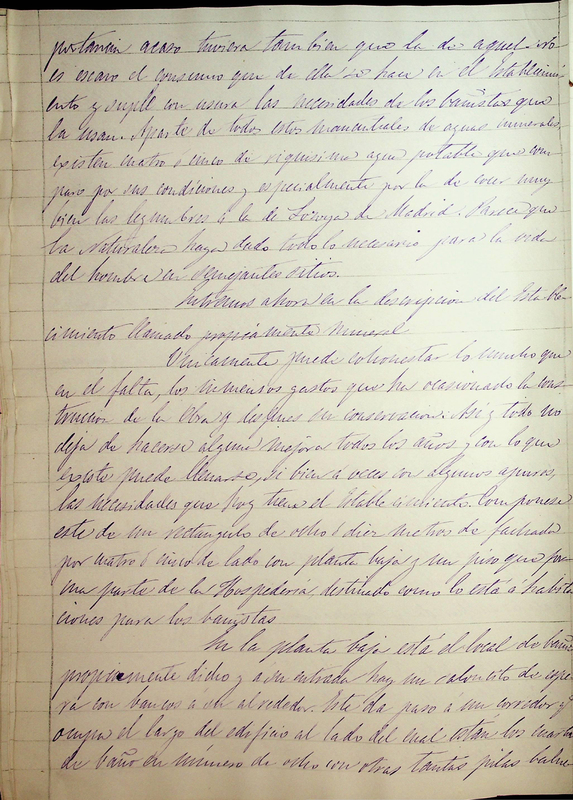 portancia acaso tuviera tambien que la de aquel. No
es escaso el consumo que de ella se hace en el Establecimi
ento y suple con usura las necesidades de los bañistas que
la usan. Aparte de todos estos manantiales de aguas minerales,
existen cuatro o cinco de riquisima agua potable que com
paro por sus condiciones y especialmente por la de cocer muy
bien las legumbres á la de Lozoya de Madrid. Parece que
la Naturaleza haya dado todo lo necesario para la vida
del hombre en semejantes sitios.
Entremos ahora en la descripcion del Estable
cimiento llamado propiamente mineral
Unicamente puede cohonestar lo mucho que
en él falta, los inmensos gastos que ha ocasionado la cons
truccion de la obra y despues su conservacion. Asi y todo no
deja de hacerse alguna mejora todos los años y con lo que
existe puede llenarse, si bien á veces con algunos apuros,
las necesidades que hoy tiene el Establecimiento. Componese
este de un rectangulo de ocho ó diez metros de fachada
por cuatro ó cinco de lado con planta baja y un piso que for
ma parte de la Hospederia, destinado como lo está á habita
ciones para los bañistas
En la planta baja está el local de baños
propiamente dicho y á su entrada hay un saloncito de espe
ra con bancos á su alrededor. Este da paso á un corredor q.
ocupa el largo del edificio al lado del cual están los cuartos
de baño en número de ocho con otras tantas pilas